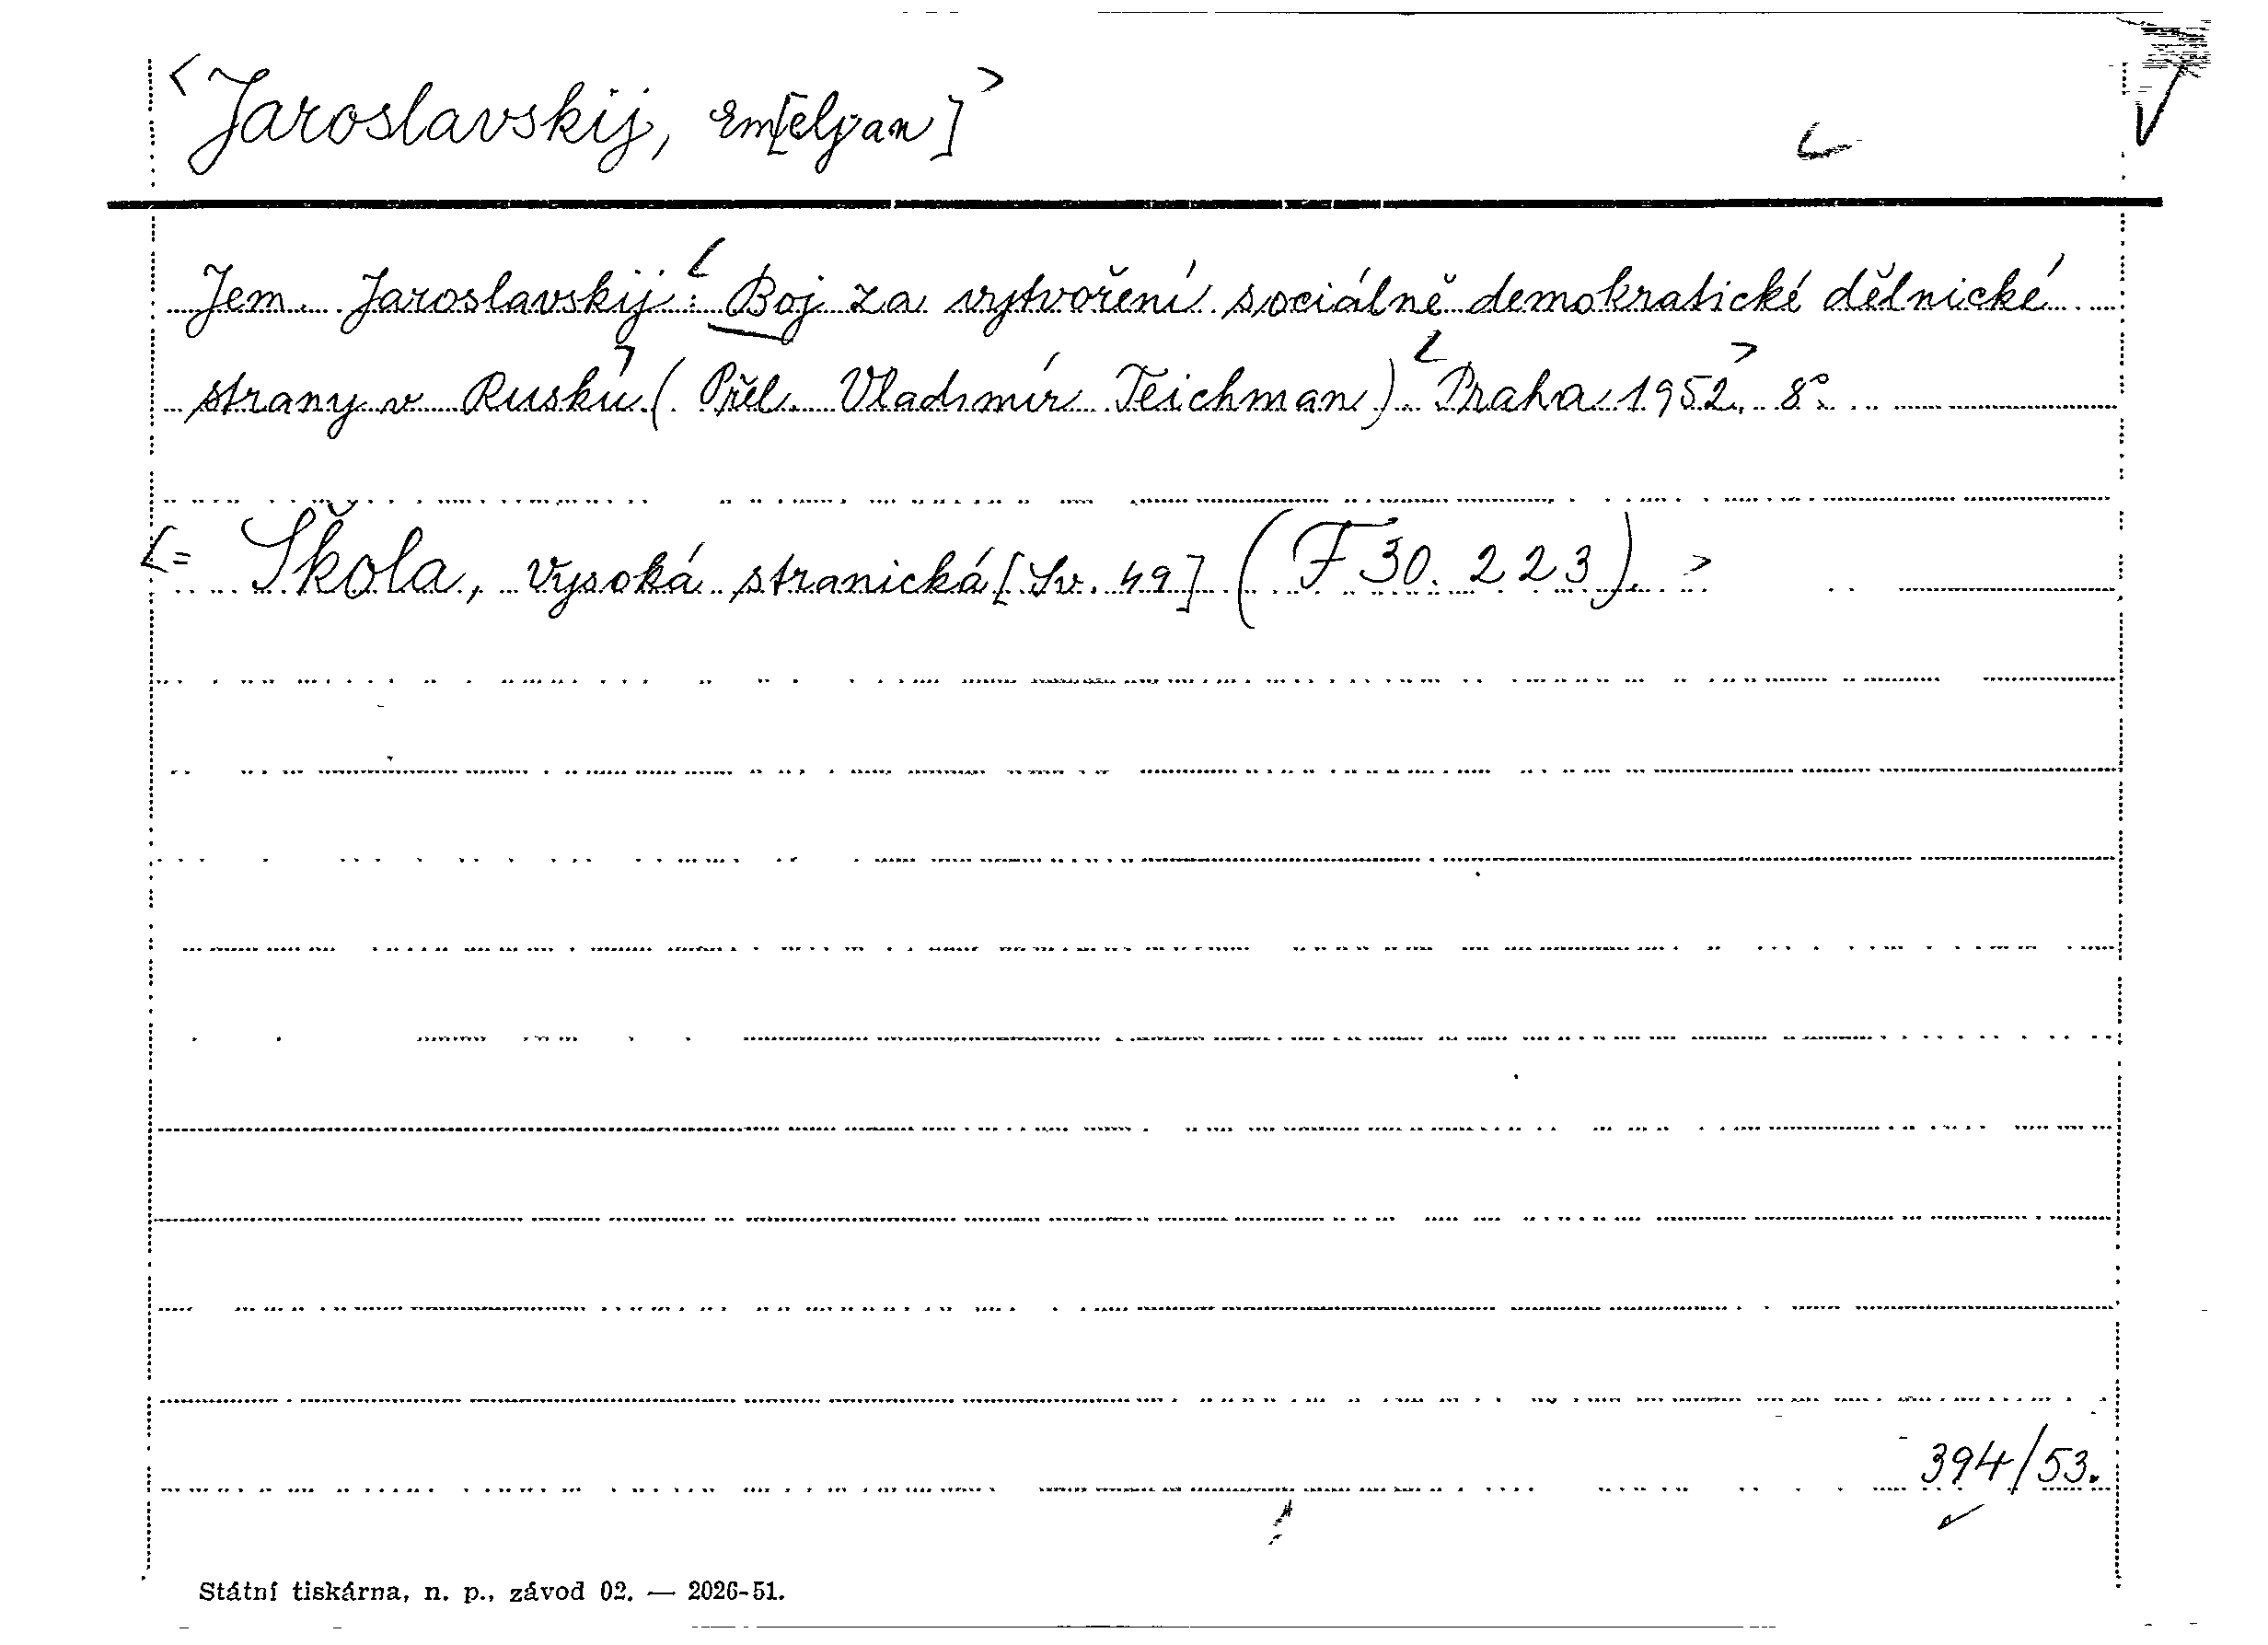 <Jaroslavskij, Em[eljan]>
Jem. Jaroslavskij: <Boj za vytvoření sociálně demokratické dělnické
strany v Rusku> (Přel. Vladimír Teichman) <Praha 1952.> 8°.
<= Škola, Vysoká stranická [Sv. 49] (F 30.223). >
394/53.
Státní tiskárna, n. p., závod 02. — 2026-51.